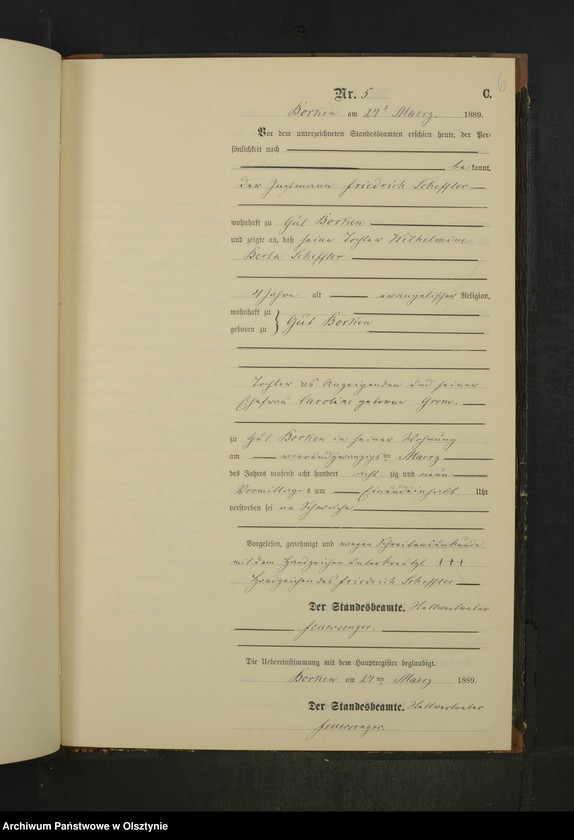 6
Nr. 5 C.
Borken am 24t Maerz 1889.
Vor dem unterzeichneten Standesbeamten erschien heute, der Per-
sönlichkeit nach
be kannt,
der Friedrich Scheffler
wohnhaft zu Gut Borken
und zeigte an, daß seine Tochter Wilhelmine
Berta Scheffler
4 Jahre alt evangelischer Religion,
wohnhaft zu
geboren zu Gut Borken
Tochter des Anzeigenden und seiner
Ehefrau Caroline geborne
zu Gut Borken in seiner Wohnung
am vierundzwanzigsten Maerz
des Jahres tausend acht hundert acht zig und neun
Vormittags um Uhr
verstorben sei an
Vorgelesen, genehmigt und wegen Schreibensunkunde
mit dem Handzeichen unterkreuzt +++
Handzeichen des Friedrich Scheffler
Der Standesbeamte.
Die Uebereinstimmung mit dem Hauptregister beglaubigt.
Borken am 24ten Maerz 1889.
Der Standesbeamte.
Archiwum Państwowe w Olsztynie